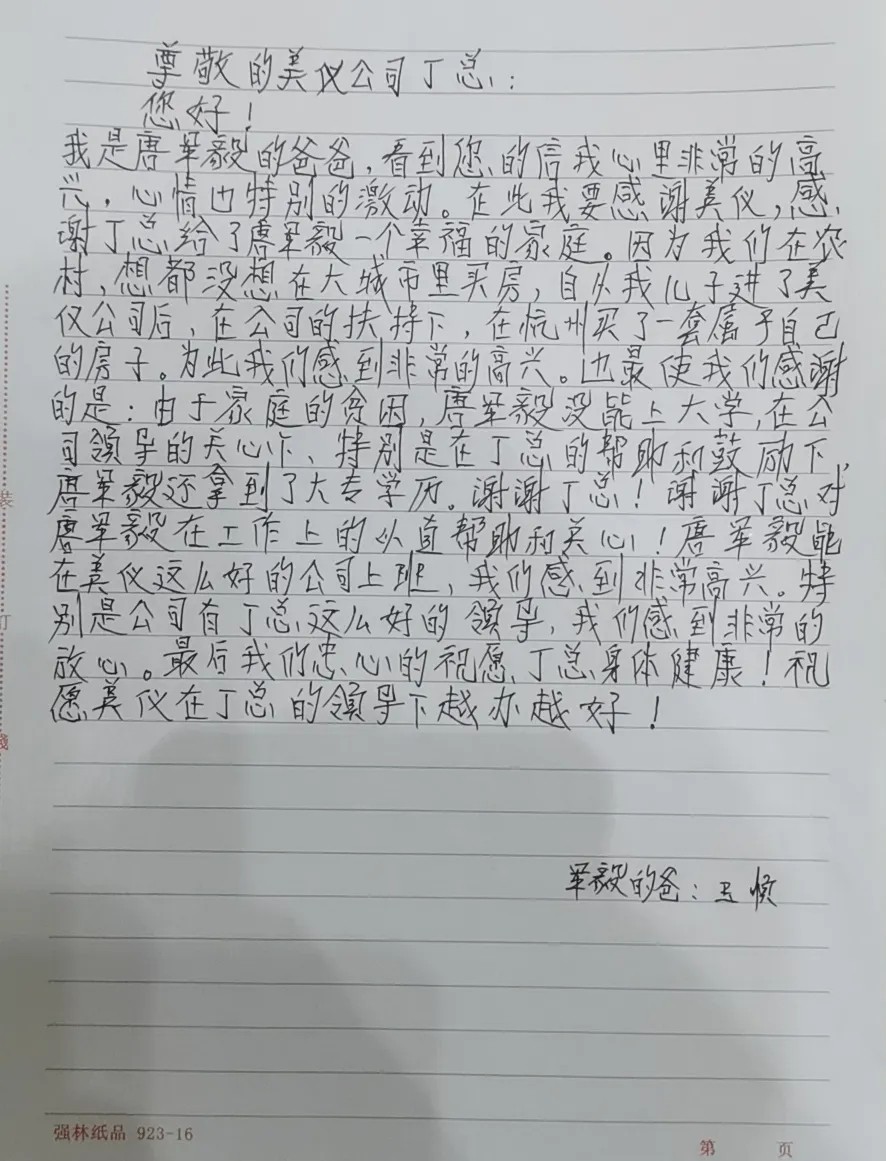 尊敬的美仪公司丁总:
您好!
我是唐军毅的爸爸,看到您的信我心里非常的高
兴,心情也特别的激动。在此我要感谢美仪,感
谢丁总给了唐军毅一个幸福的家庭。因为我们在农
村,想都没想在大城市里买房,自从我儿子进了美
仪公司后,在公司的扶持下,在杭州买了一套属于自己
的房子。为此我们感到非常的高兴。也最使我们感谢
的是:由于家庭的贫困,唐军毅没能上大学,在公
司领导的关心下、特别是在丁总的帮助和鼓励下,
唐军毅还拿到了大专学历。谢谢丁总!谢谢丁总对
唐军毅在工作上的以直帮助和关心!唐军毅能
在美仪这么好的公司上班,我们感到非常高兴。特
别是公司有丁总这么好的领导,我们感到非常的
放心。最后我们忠心的祝愿丁总身体健康!祝
愿美仪在丁总的领导下越办越好!
军毅的爸:
强林纸品 923-16
第 页
装
订
线